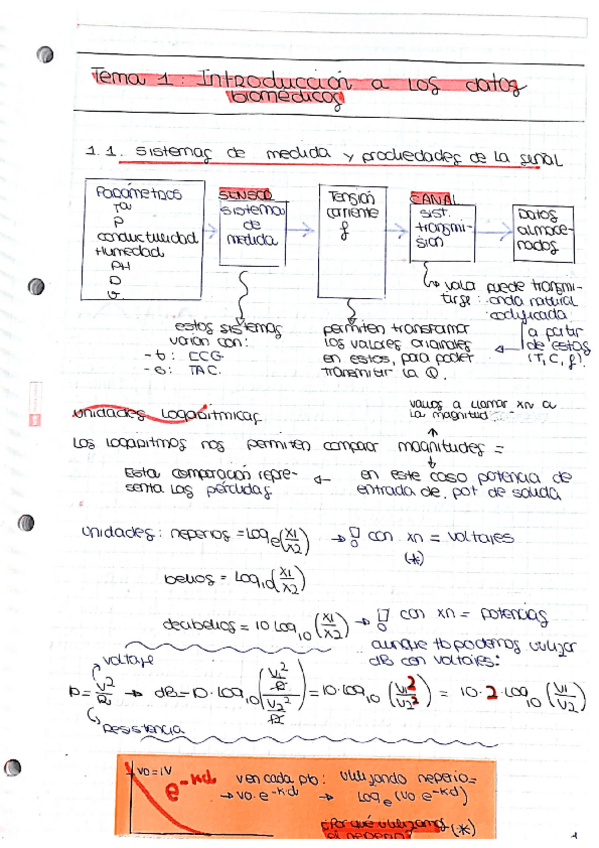 Tema 1: Introducción a los datos
biomédicos
1.1. Sistemas de medida y propiedades de la señal
Parámetros
Tª
P
conductividad
Humedad
PH
O
SENSOR
sistemas
de
medida
Tensión
corriente
f
CANAL
sist.
transmi-
sión
Datos
almace-
nados
estos sistemas
varían con:
- t: ECG
- e: TAC.
permiten transformar
los valores originales
en estos, para poder
transmitir la Q.
puede transmi-
tirse: onda natural
codificada
a partir
de estos
(T, C, f).
Unidades Logarítmicas
vamos a llamar xn a
la magnitud
Los logaritmos nos permiten comparar magnitudes =
Esta comparación repre-
senta las pérdidas
en este caso potencia de
entrada de, pot de salida
unidades: neperios = Log e (x1/x2) → con xn = voltajes
(*)
belios = Log10 (x1/x2)
decibelios = 10 Log10 (x1/x2) → con xn = potencias
aunque tb podemos utilizar
dB con voltajes:
voltaje
P = V²/R → dB = 10 · log10 (V1²/R / V2²/R) = 10 log10 (V1²/V2²) = 10 · 2 · log10 (V1/V2)
Resistencia
V0 = 1V
e^-kd
V en cada pto: utilizando neperio =
→ V0 · e^-kd → Loge (V0 e^-kd)
¿Por qué utilizamos (*)
el neperio?
1